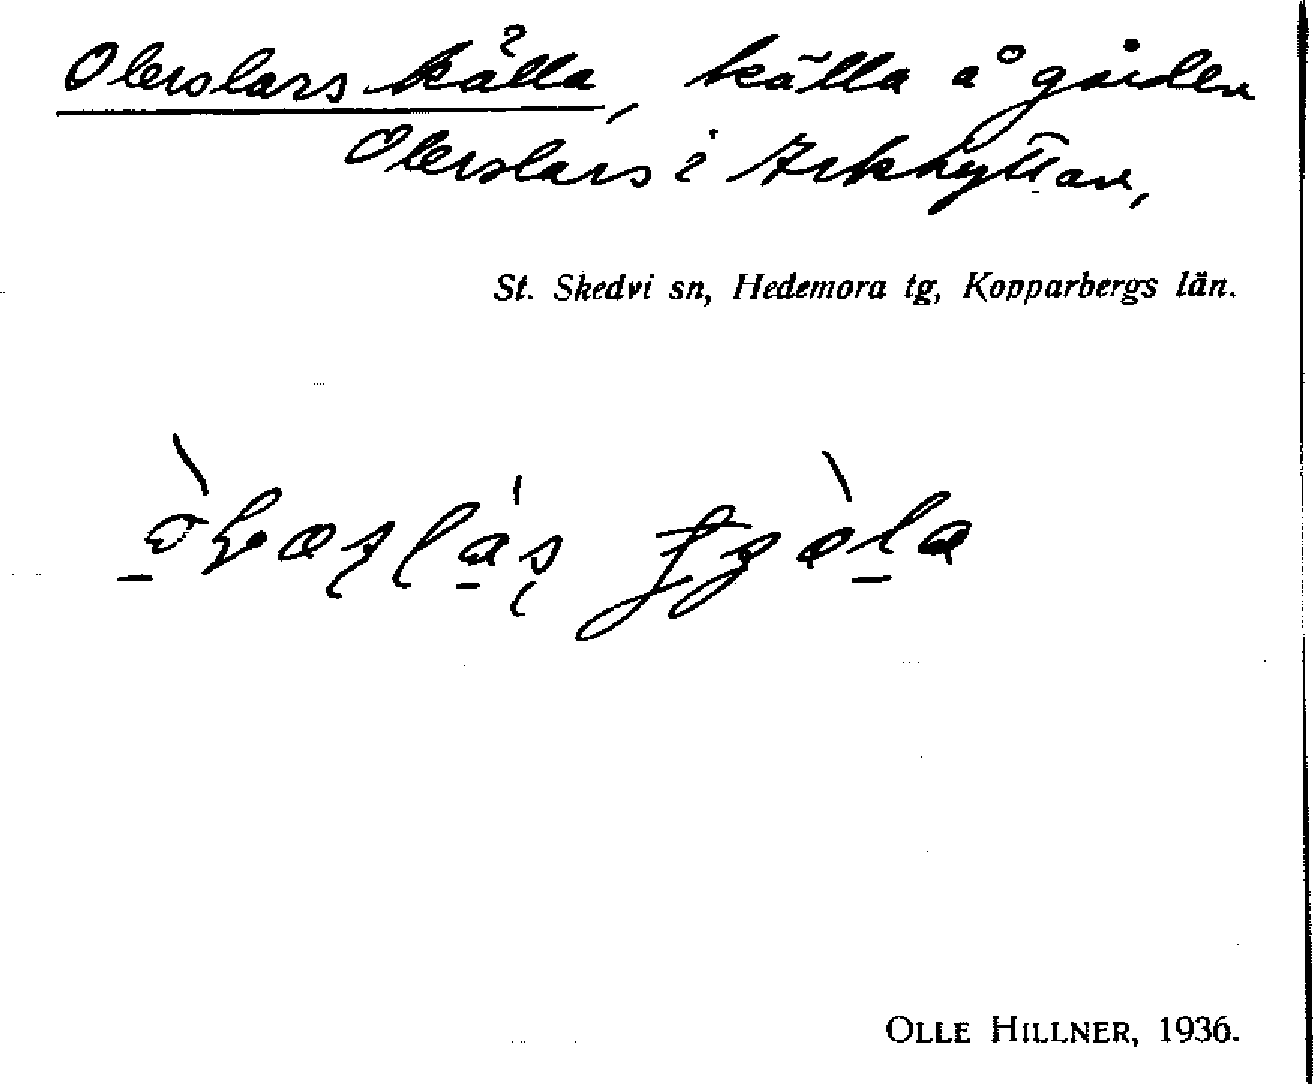 Olerslars källa, källa å gården
Olerslars i Arkhyttan,
St. Skedvi sn, Hedemora tg, Kopparbergs län.
OLLE HILLNER, 1936.